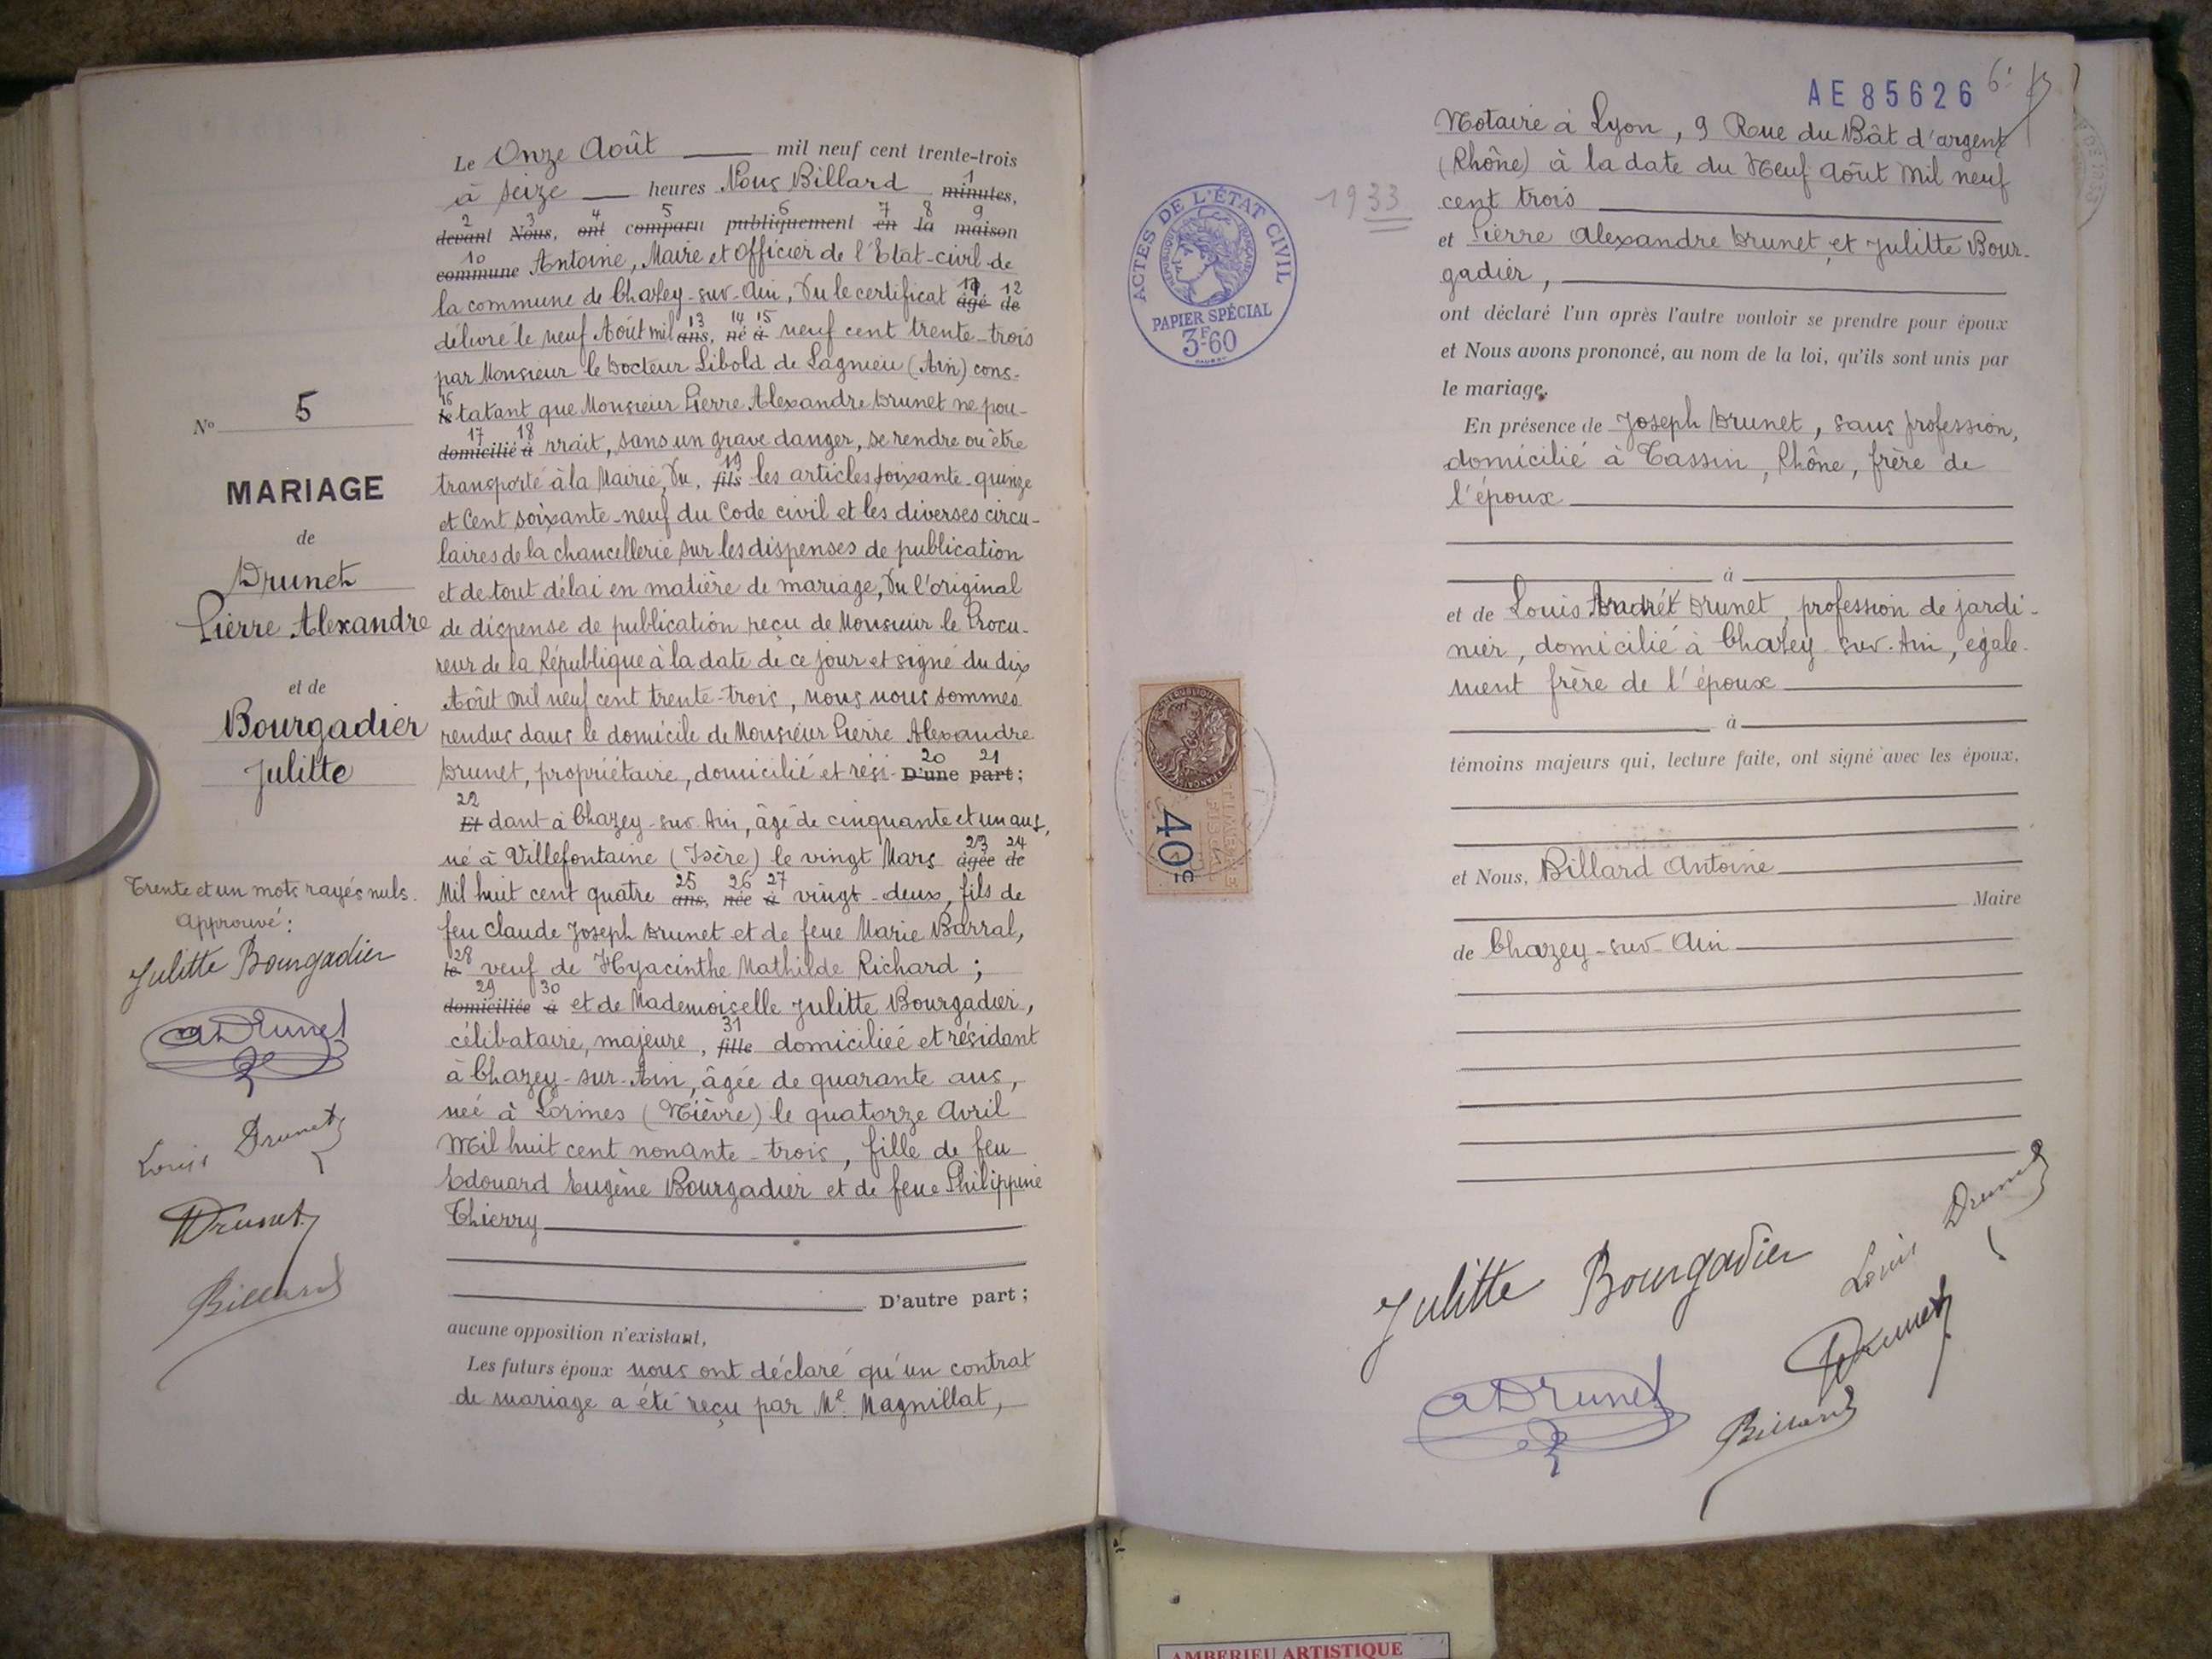 Le Onze Août mil neuf cent trente-trois
à seize heures Nous Billard 1 minutes,
2 3 4 5 6 7 8 9
devant Nous, ont comparu publiquement en la maison
10
commune Antoine, Maire et Officier de l'Etat-civil de
la commune de Chazey-sur-Ain, Vu le certificat 11 âgé 12 de
délivré le neuf Août mil 13 ans, 14 né 15 à neuf cent trente-trois
par Monsieur le Docteur Libold de Lagnieu (Ain) cons-
16 le tatant que Monsieur Pierre Alexandre Drunet ne pou-
17 domicilié 18 à rrait, sans un grave danger, se rendre ou être
transporté à la Mairie, Vu, 19 fils les articles soixante-quinze
et Cent soixante-neuf du Code civil et les diverses circu-
laires de la chancellerie sur les dispenses de publication
et de tout délai en matière de mariage, Vu l'original
de dispense de publication reçu de Monsieur le Procu-
reur de la République à la date de ce jour et signé du dix
Août mil neuf cent trente-trois, nous nous sommes
rendus dans le domicile de Monsieur Pierre Alexandre
Drunet, propriétaire, domicilié et rési- 20 D'une 21 part;
22
Et dant à Chazey-sur-Ain, âgé de cinquante et un ans,
né à Villefontaine (Isère) le vingt Mars 23 âgée 24 de
Mil huit cent quatre 25 ans, 26 née 27 à vingt-deux, fils de
feu Claude Joseph Drunet et de feue Marie Barral,
28 le veuf de Hyacinthe Mathilde Richard;
29 domiciliée 30 à et de Mademoiselle Julitte Bourgadier,
célibataire, majeure, 31 fille domiciliée et résidant
à Chazey-sur-Ain, âgée de quarante ans,
née à Lormes (Nièvre) le quatorze Avril
Mil huit cent nonante-trois, fille de feu
Edouard Eugène Bourgadier et de feue Philippine
Thierry
D'autre part;
aucune opposition n'existant,
Les futurs époux nous ont déclaré qu'un contrat
de mariage a été reçu par Me Magnillat,
No 5
MARIAGE
de
Drunet
Pierre Alexandre
et de
Bourgadier
Julitte
Trente et un mots rayés nuls.
Approuvé:
Julitte Bourgadier
a Drunet
Louis Drunet
Drunet
Billard
AE 85626
Notaire à Lyon, 9 Rue du Bât d'argent
(Rhône) à la date du Neuf Août Mil neuf
1933
cent trois
et Pierre Alexandre Drunet et Julitte Bour-
gadier,
ont déclaré l'un après l'autre vouloir se prendre pour époux
et Nous avons prononcé, au nom de la loi, qu'ils sont unis par
le mariage.
En présence de Joseph Drunet, sans profession,
domicilié à Tassin, Rhône, frère de
l'époux
à
et de Louis Drunet, profession de jardi-
nier, domicilié à Chazey-sur-Ain, égale-
ment frère de l'époux
à
témoins majeurs qui, lecture faite, ont signé avec les époux,
et Nous, Billard Antoine
Maire
de Chazey-sur-Ain
Julitte Bourgadier
Louis Drunet
Drunet
a Drunet
Billard
ACTES DE L'ÉTAT CIVIL
RÉPUBLIQUE FRANÇAISE
PAPIER SPÉCIAL
3F60
TIMBRE
FISCAL
40c
AMBERIEU ARTISTIQUE